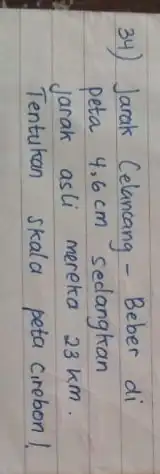 34) Jarak Celancang - Beber di
peta 4,6 cm sedangkan
jarak asli mereka 23 km.
Tentukan skala peta Cirebon!